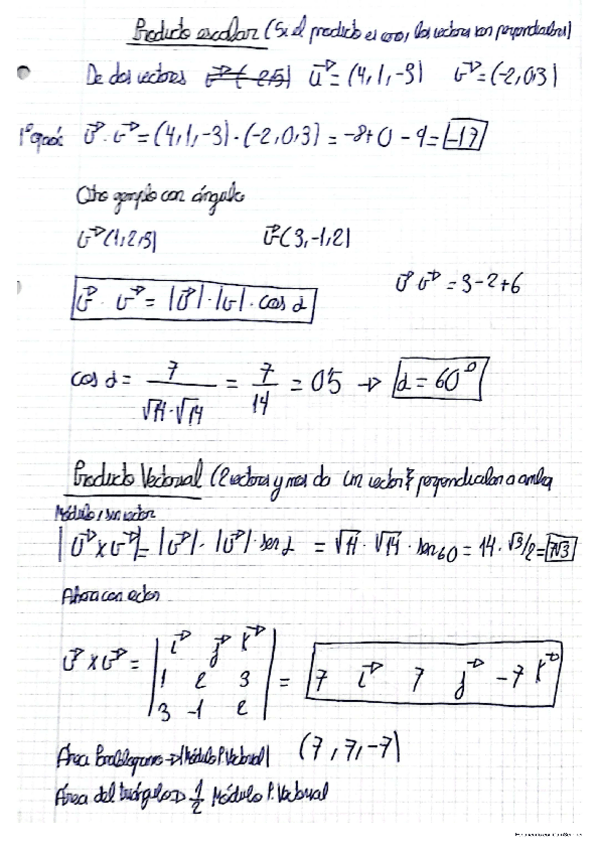 Producto escalar (Si el producto es cero, los vectores son perpendiculares)
De dos vectores u⃗ = (4, 1, -3) v⃗ = (-2, 0, 3)
u⃗ · v⃗ = (4, 1, -3) · (-2, 0, 3) = -8 + 0 - 9 = -17
Otro ejemplo con ángulo
u⃗ (1, 2, 3) v⃗ (3, -1, 2)
u⃗ · v⃗ = |u⃗| · |v| · cos α
u⃗ v⃗ = 3 - 2 + 6
cos α = 7 / √14 · √14 = 7 / 14 = 0'5 → α = 60°
Producto Vectorial (2 vectores y nos da un vector perpendicular a ambos
Módulo, sin vector
|u⃗ x v⃗| = |u⃗| · |v⃗| · sen α = √14 · √14 · sen 60 = 14 · √3/2 = 7√3
Ahora con vector
u⃗ x v⃗ = | i⃗ j⃗ k⃗ |
| 1 2 3 | = 7 i⃗ 7 j⃗ - 7 k⃗
| 3 -1 2 |
Área Paralelogramo → |Módulo P. Vectorial| (7, 7, -7)
Área del triángulo → 1/2 Módulo P. Vectorial